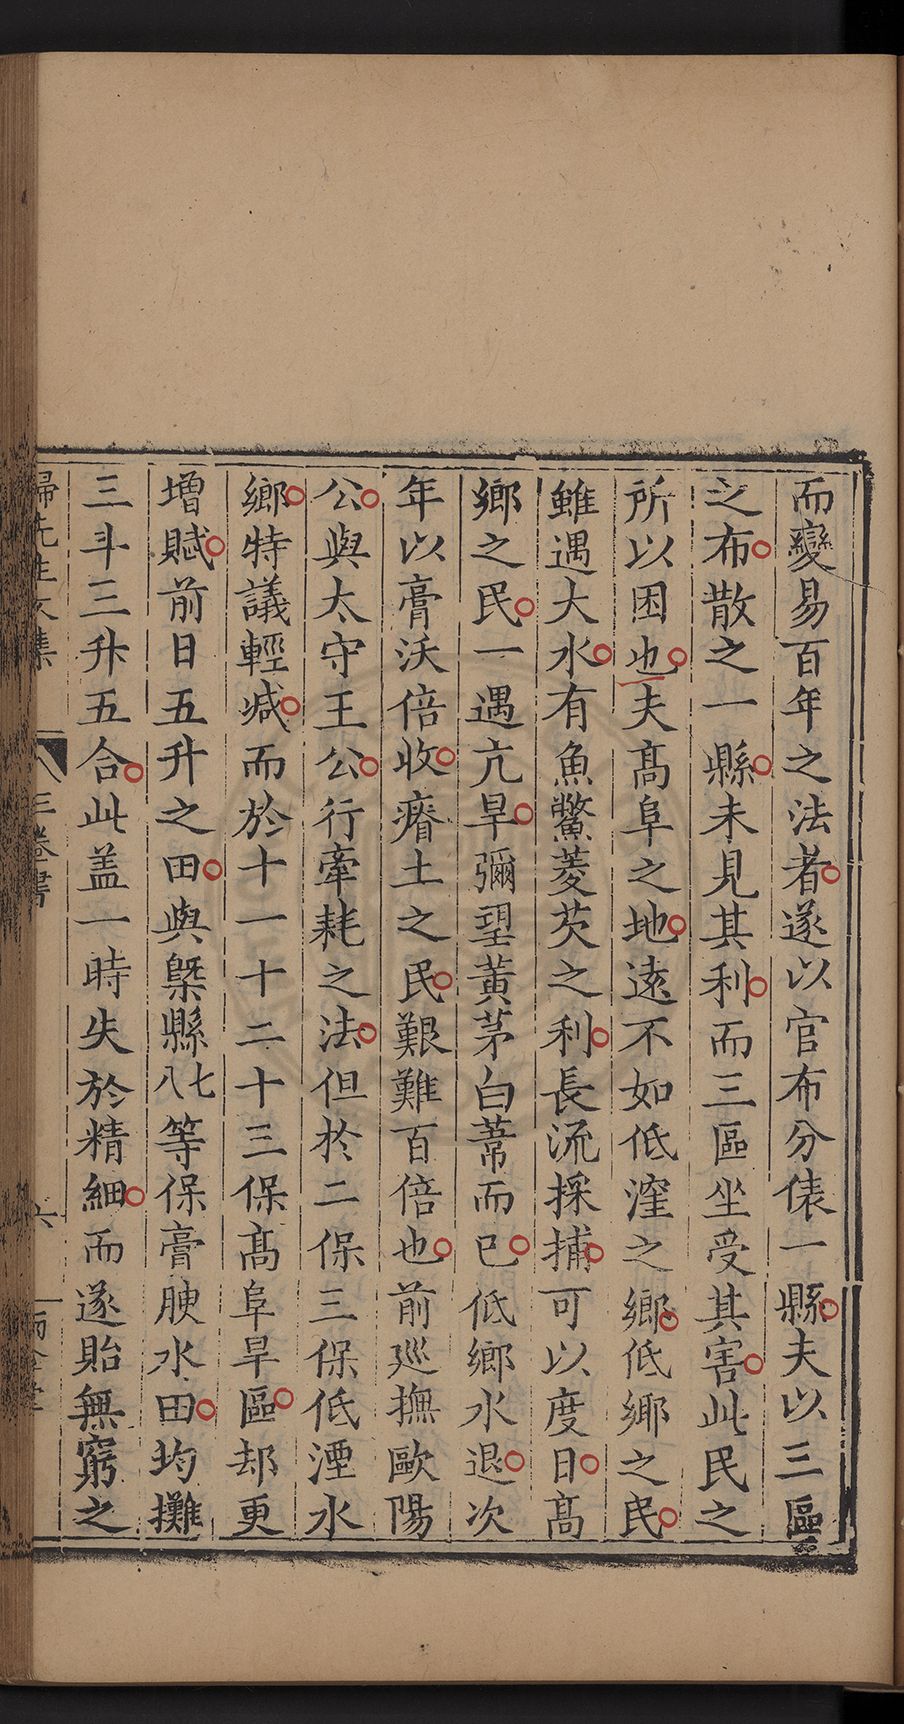 而變易百年之法者遂以官布分俵一縣夫以三區
之布散之一縣未見其利而三區坐受其害此民之
所以困也夫高阜之地遠不如低漥之鄉低鄉之民
雖遇大水有魚鱉菱芡之利長流採捕可以度日高
鄉之民一遇亢旱彌望黃茅白葦而已低鄉水退次
年以膏沃倍收瘠土之民艱難百倍也前廵撫歐陽
公與太守王公行牽耗之法但於二保三保低湮水
鄉特議輕减而於十一十二十三保高阜旱區却更
增賦前日五升之田與槩縣七八等保膏腴水田均攤
三斗三升五合此盖一時失於精細而遂貽無窮之
歸先生文集 三卷書 六